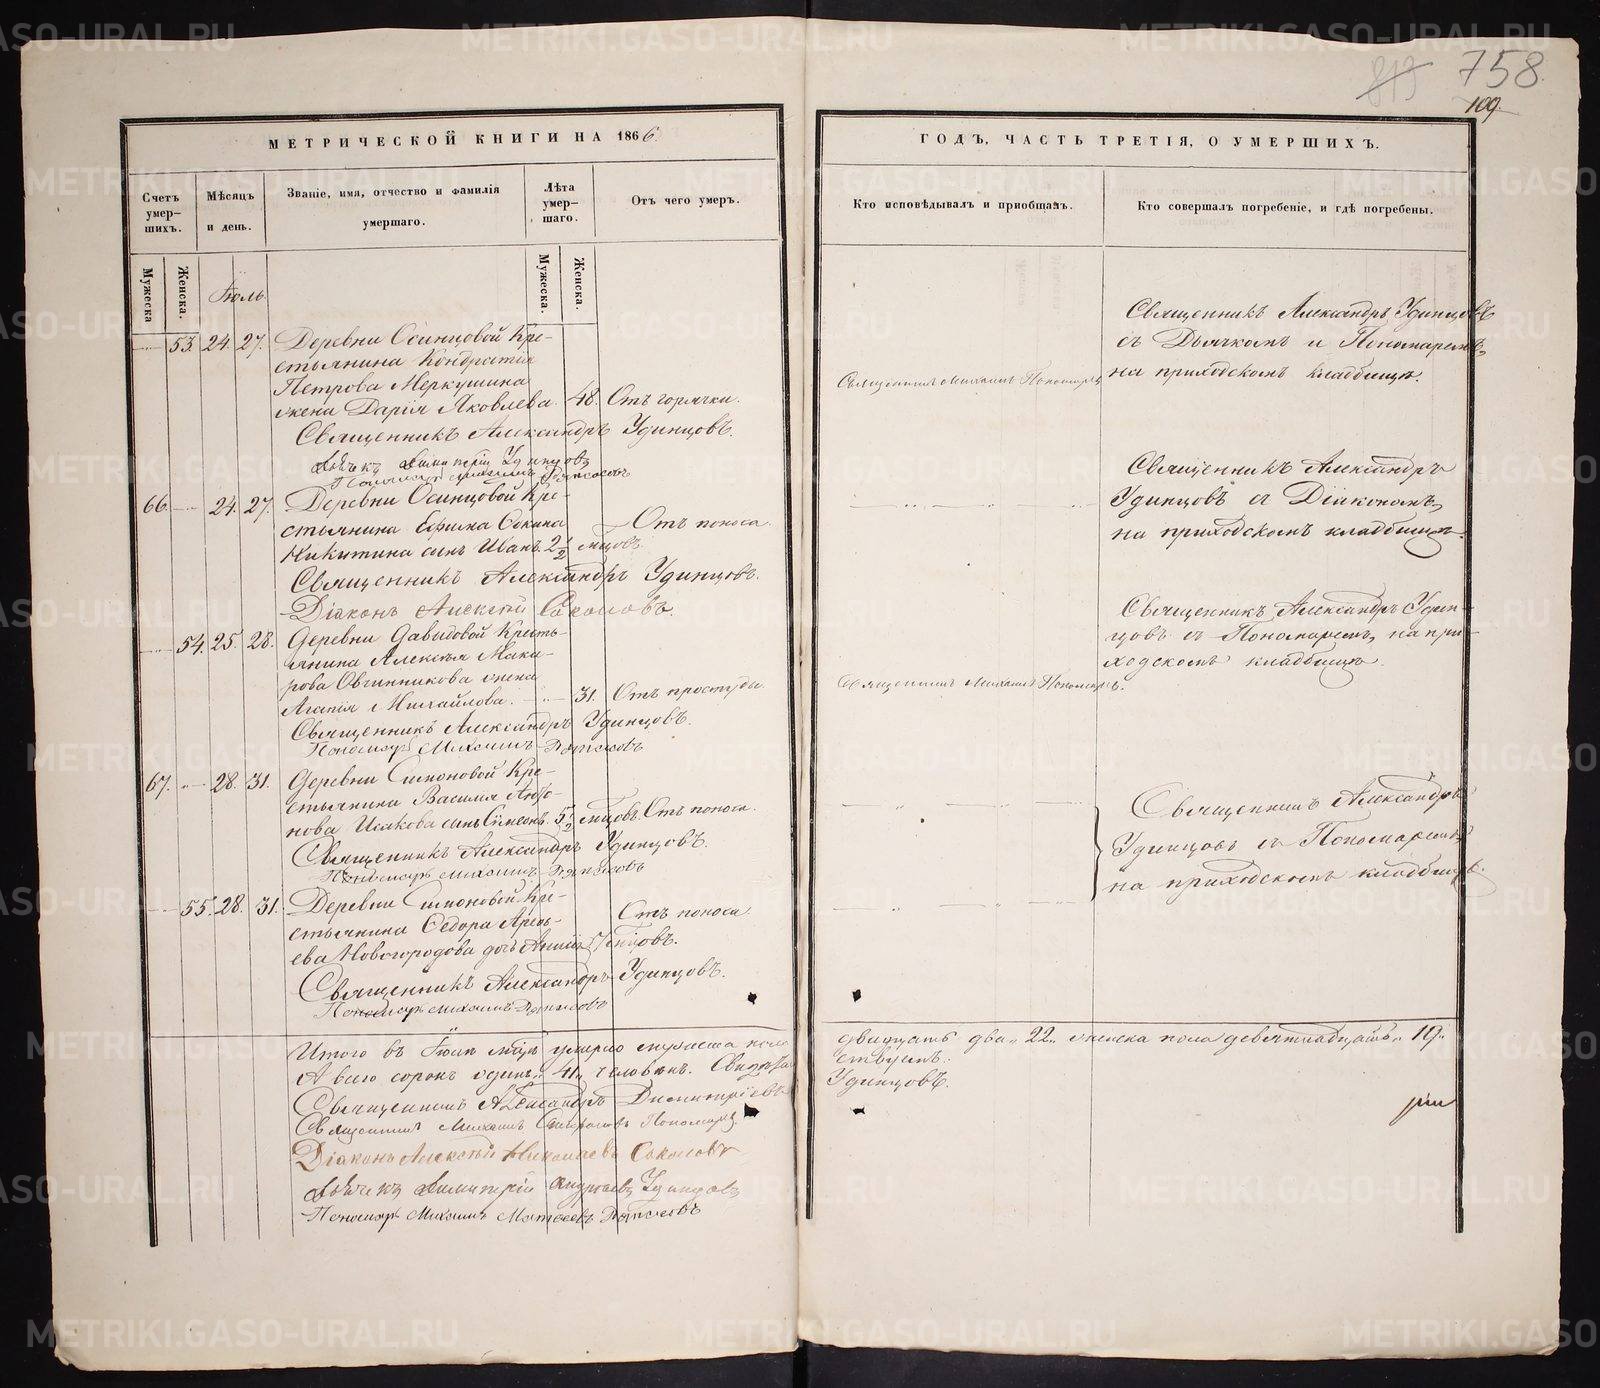 758.
819
109.
МЕТРИЧЕСКОЙ КНИГИ НА 1866.
ГОДЪ, ЧАСТЬ ТРЕТІЯ, О УМЕРШИХЪ.
Счетъ умер-шихъ.
Мѣсяцъ и день.
Званіе, имя, отчество и фамилія умершаго.
Лѣта умер-шаго.
Отъ чего умеръ.
Кто исповѣдывалъ и приобщалъ.
Кто совершалъ погребеніе, и гдѣ погребены.
Мужеска
Женска.
Мужеска.
Женска.
Іюль.
53. 24. 27. Деревни Осинцовой Кре-
стьянина Кондратія
Петрова Меркушина
жена Дарія Яковлева. 48. Отъ горячки.
Священникъ Михаилъ Пономаревъ
Священникъ Александръ Удинцовъ
съ Дьячкомъ и Пономаремъ,
на приходскомъ кладбищѣ.
Священникъ Александръ Удинцовъ.
Дьячекъ Димитрій Удинцовъ
Пономарь Михаилъ
66. 24. 27. Деревни Осинцовой Кре-
стьянина Ефима
Никитина сынъ Иванъ. 2 1/2 мѣсцовъ. Отъ поноса.
Священникъ Александръ
Удинцовъ съ Діакономъ,
на приходскомъ кладбищѣ.
Священникъ Александръ Удинцовъ.
Діаконъ Алексѣй Соколовъ.
54. 25. 28. Деревни Давыдовой Кресть-
янина Алексѣя Мака-
рова Овчинникова жена
Агапія Михайлова. 31. Отъ простуды.
Священникъ Михаилъ Пономаревъ.
Священникъ Александръ Удин-
цовъ съ Пономаремъ, на при-
ходскомъ кладбищѣ.
Священникъ Александръ Удинцовъ.
Пономарь Михаилъ
67. 28. 31. Деревни Симоновой Кре-
стьянина Василія
сынъ Симеонъ. 5 1/2 мѣсцовъ. Отъ поноса.
Священникъ Александръ Удинцовъ.
Пономарь Михаилъ
Священникъ Александръ
Удинцовъ съ Пономаремъ
на приходскомъ кладбищѣ.
55. 28. 31. Деревни Симоновой Кре-
стьянина Ѳедора Арень-
ева Новогородова дочь 7 мѣсцовъ. Отъ поноса.
Священникъ Александръ Удинцовъ.
Пономарь Михаилъ
Итого въ Іюлѣ мѣсцѣ умерло мужеска пола двадцать два „22„ женска пола девятнадцать „19„
А всего сорокъ одинъ „41„ человѣкъ. Свидѣтельствуемъ.
Священникъ Александръ Димитріевъ Удинцовъ.
Священникъ Михаилъ Пономаревъ
Діаконъ Алексѣй Николаевъ Соколовъ
Дьячекъ Димитрій Андреевъ Удинцовъ
Пономарь Михаилъ Матвеевъ
METRIKI.GASO-URAL.RU